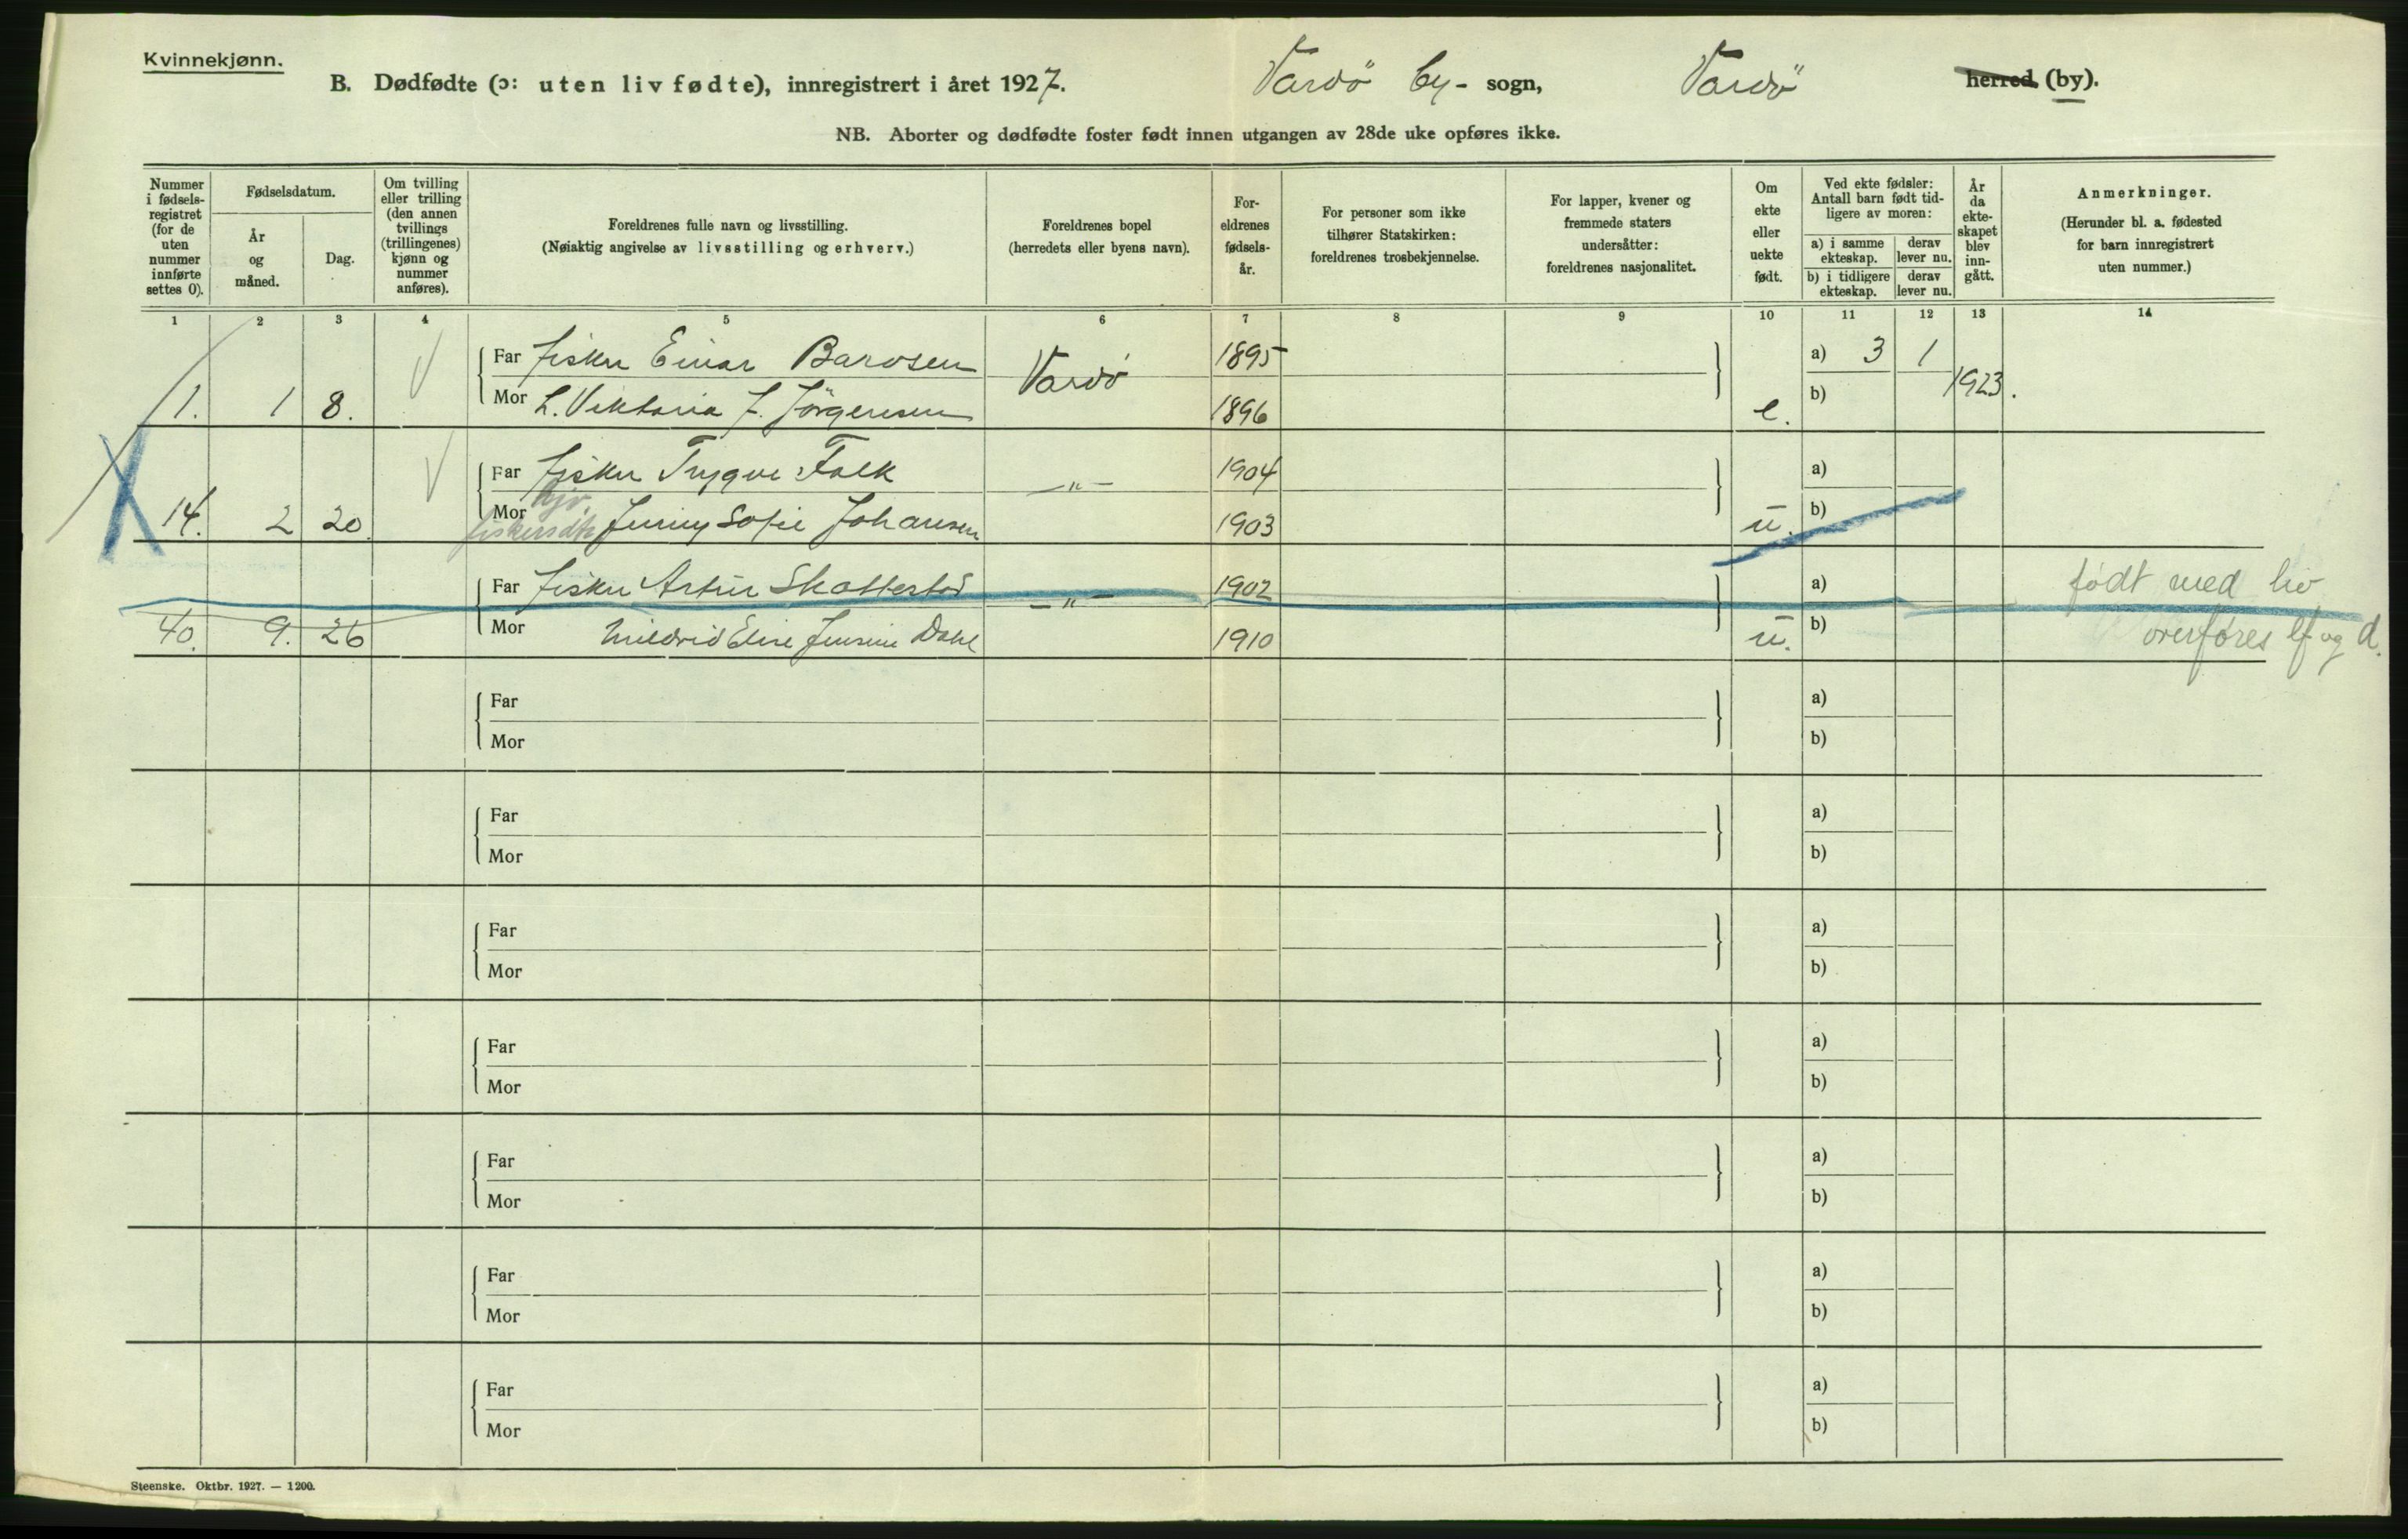 Kvinnekjønn.
B. Dødfødte (ɔ: uten liv fødte), innregistrert i året 1927. Vardö by- sogn, Vardö herred (by).
NB. Aborter og dødfødte foster født innen utgangen av 28de uke opføres ikke.
Nummer i fødsels-registret (for de uten nummer innførte settes 0).
Fødselsdatum.
År og måned.
Dag.
Om tvilling eller trilling (den annen tvillings (trillingenes) kjønn og nummer anføres).
Foreldrenes fulle navn og livsstilling.
(Nøiaktig angivelse av livsstilling og erhverv.)
Foreldrenes bopel (herredets eller byens navn).
For-eldrenes fødsels-år.
For personer som ikke tilhører Statskirken: foreldrenes trosbekjennelse.
For lapper, kvener og fremmede staters undersåtter: foreldrenes nasjonalitet.
Om ekte eller uekte født.
Ved ekte fødsler: Antall barn født tid-ligere av moren:
a) i samme ekteskap.
derav lever nu.
b) i tidligere ekteskap.
derav lever nu.
År da ekte-skapet blev inn-gått.
Anmerkninger.
(Herunder bl. a. fødested for barn innregistrert uten nummer.)
1 2 3 4 5 6 7 8 9 10 11 12 13 14
Far fisker Einar Barosen Vardö 1895 a) 3 1
1. 1 8. Mor L. Viktoria J. Jörgensen 1896 e. b) 1923.
Far fisker Trygve Falk — " — 1904 a)
14. 2 20. Mor fiskersdtr Jenny Sofie Johansen 1903 u. b)
Far fisker Artur Skattestad — " — 1902 a) født med liv
40. 9. 26 Mor Mildrid Elise Jensine Dahl 1910 u. b) overføres lf og d.
Far a)
Mor b)
Far a)
Mor b)
Far a)
Mor b)
Far a)
Mor b)
Far a)
Mor b)
Far a)
Mor b)
Far a)
Mor b)
Steenske. Oktbr. 1927. — 1200.